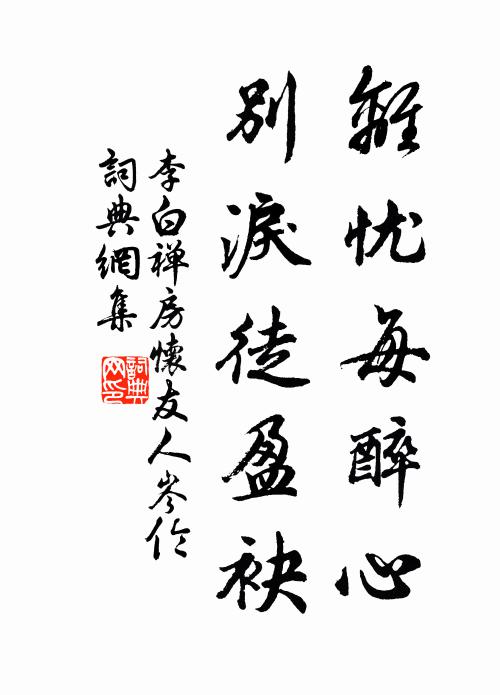 離忧每醉心
別淚徒盈袂
李白禅房懷友人岑伦
詞典網集
詞典
网印